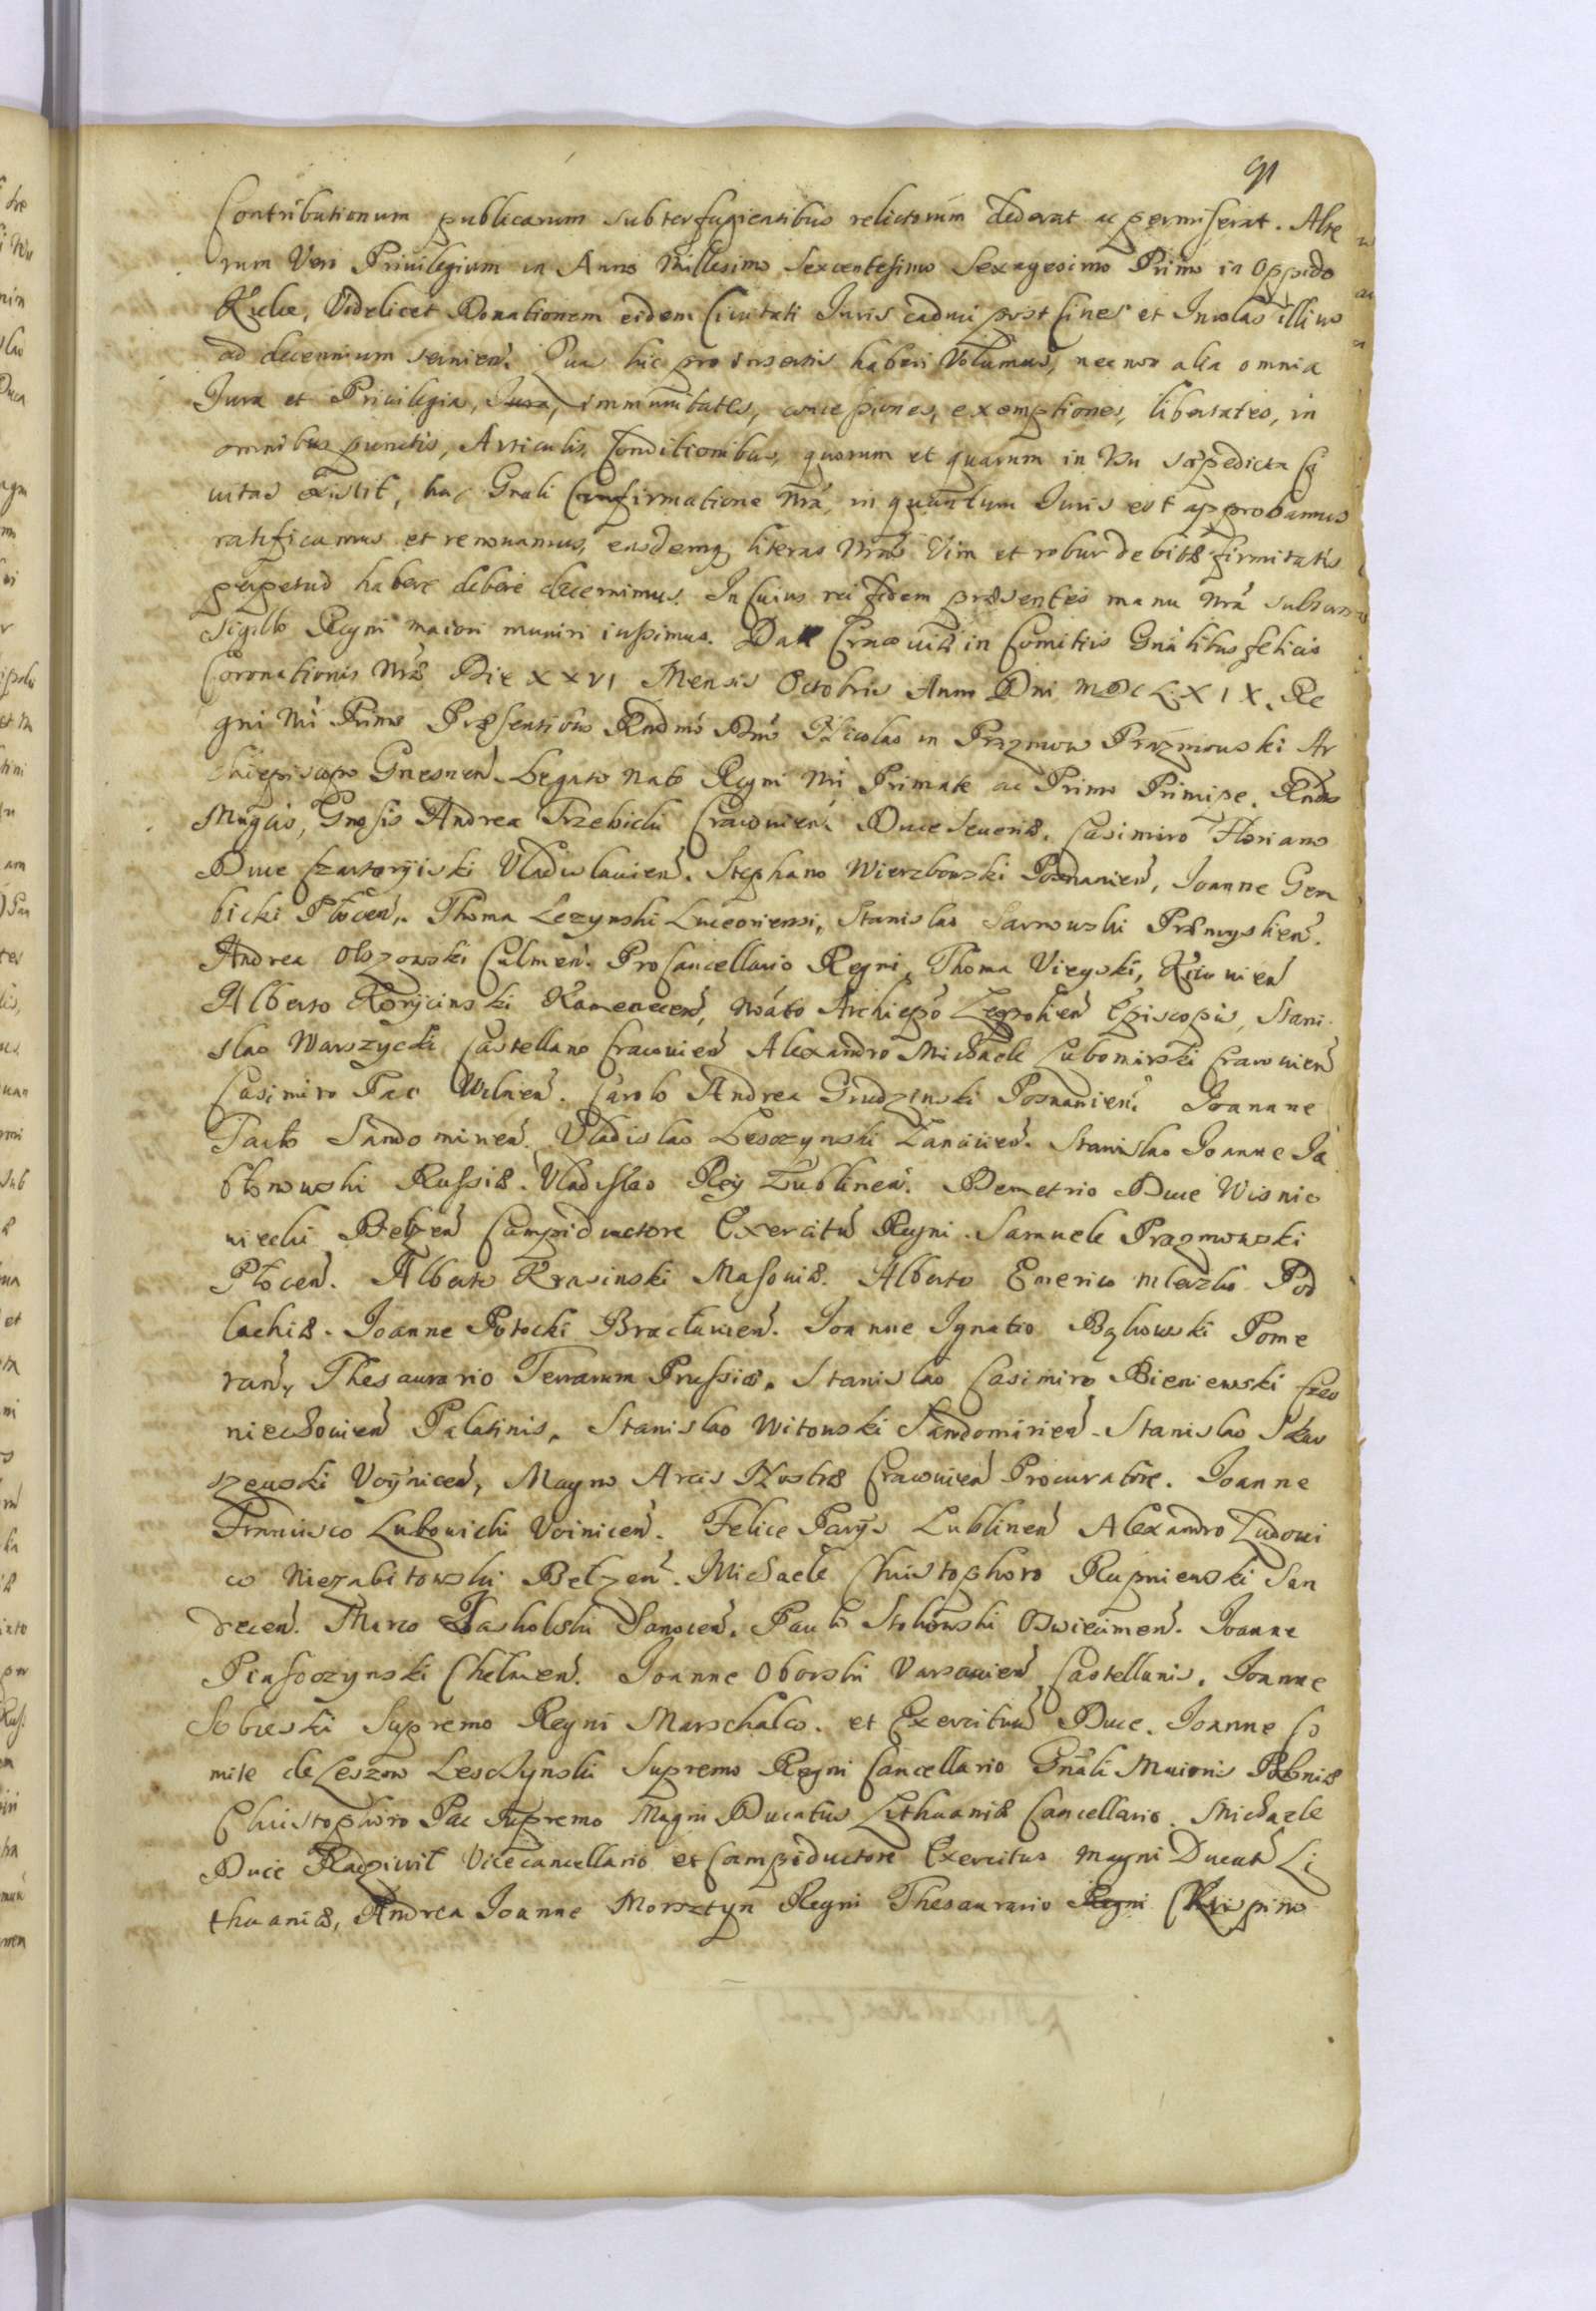 91
Contributionum publicarum subterfugientibus relictorum dederat ac permiserat. Alte
rum Vero Privilegium in Anno Millesimo Sexcentesimo Sexagesimo Primo in Oppido
Videlicet Donationem eidem Civitati Iuris caduci post Cives et Incolas illius
ad decennium servien. Qua hic pro insertis haberi Volumus, nec non alia omnia
Iura et Privilegia, Iura, immunitates, concessiones, exemptiones, libertates, in
omnibus punctis, Articulis, Conditionibus, quorum et quarum in Usu saepedicta Ci
vitas existit, hac Gnali Confirmatione Nrâ, in quantum Iuris est approbamus
ratificamus et renovamus, easdemq literas Nras Vim et robur debitæ firmitatis
perpetuò habere debere decernimus. In Cuius rei fidem præsentes manu Nrâ subscr
Sigillo Regni maiori muniri iussimus. Dat Cracoviæ in Comitiis Gnalibus felicis
Coronationis Nræ Die XXVI Mensis Octobris Anno Dni MDCLXIX. Re
gni Nri Primo Præsentibus Rndmo Dno Nicolao in Prazmow Prazmowski Ar
chiepiscopo Gnesnen. Legato Nato Regni Nri Primate ac Primo Principe. Rndis
Magcis, Gnosis Andrea Trzebicki Cracovien. Duce Severiæ. Casimiro Floriano
Duce Czartoryiski Vladislavien. Stephano Wierzbowski Posnanien, Joanne Gem
bicki Płocen, Thoma Lezynski Luceoriensi, Stanislao Sarnowski Præmyslien.
Andrea Olszowski Culmen. ProCancellario Regni, Thoma Vieyski, Kiiovien
Alberto Koryciński Kamenecen, Archiepo Leopolien Episcopis, Stani
slao Warszycki Castellano Cracovien Alexandro Michaele Lubomirski Cracovien
Casimiro Pac Wilnen. Carolo Andrea Grudzinski Posnanien. Joanne
Tarło Sandomirien. Vladislao Lesczynski Lancicien. Stanislao Joanne Ja
błonowski Russiæ. Vladislao Rey Lublinen. Demetrio Duce Wisnio
wiecki Belzen Campiductore Exercitus Regni. Samuele Prazmowski
Płocen. Alberto Krasinski Masoviæ. Alberto Emerico Mleczko Pod
lachiæ. Joanne Potocki Bracłavien. Joanne Ignatio Bąkowski Pome
ran, Thesaurario Terrarum Prussiæ. Stanislao Casimiro Bieniewski Czer
niechovien Palatinis, Stanislao Witowski Sandomirien. Stanislao Skar
szewski Voÿnicen, Magno Arcis Nostræ Cracovien Procuratore. Joanne
Francisco Lubowicki Voinicen. Felice Parÿs Lublinen Alexandro Ludovi
co Niezabitowski Belzen. Michaele Christophoro Rupniewski San
decen. Marco Sanocen. Paulo Oswiecimen. Joanne
Piasoczynski Chelmen. Joanne Oborski Varsavien Castellanis. Joanne
Sobieski Supremo Regni Marschalco. et Exercituum Duce. Joanne Co
mite de Leszno Lesczynski Supremo Regni Cancellario Gnali Maioris Poloniæ
Christophoro Pac Supremo Magni Ducatus Lithuaniæ Cancellario. Michaele
Duce Radziwil Vicecancellario et Campiductore Exercitus Magni Ducat Li
thuaniæ, Andrea Joanne Morsztyn Regni Thesaurario Regni Krispino